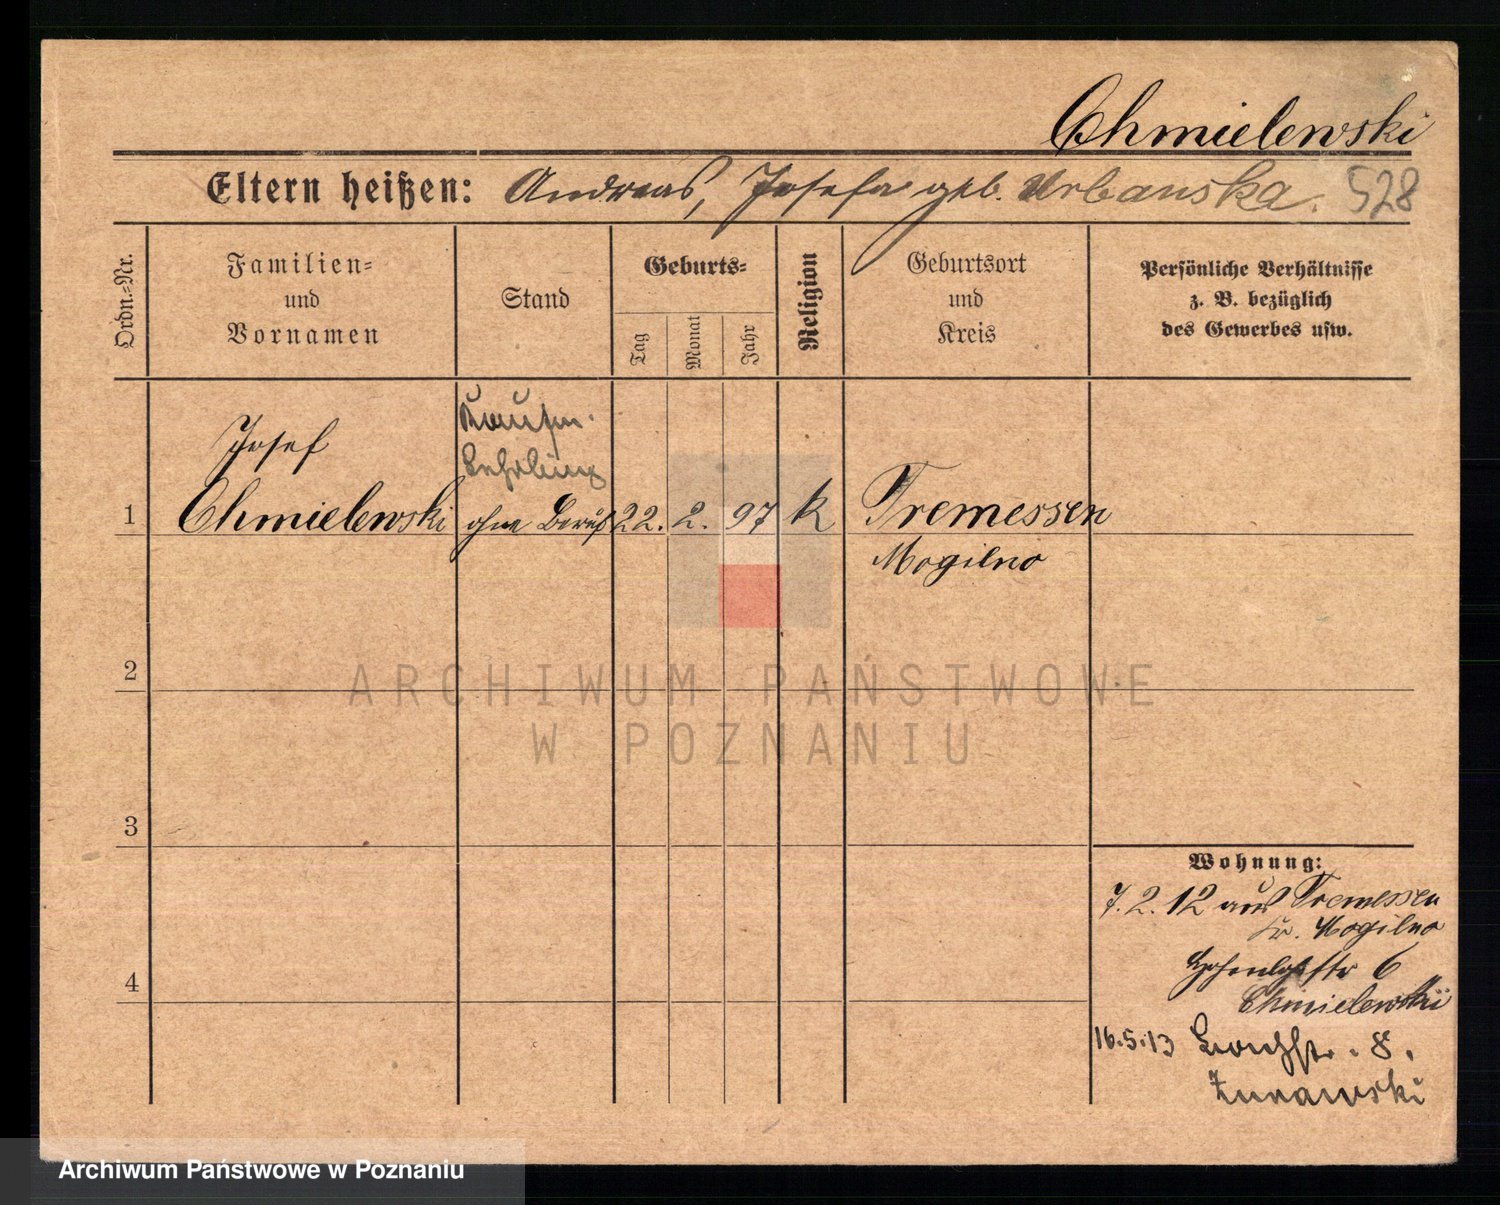 Chmielewski
Eltern heißen: Andreas, Josefa geb. Urbanska. 528
Ordn.-Nr.
Familien-
und
Vornamen
Stand
Geburts-
Tag
Monat
Jahr
Religion
Geburtsort
und
Kreis
Persönliche Verhältnisse
z. B. bezüglich
des Gewerbes usw.
Kaufm.
Lehrling
Josef
1 Chmielewski ohne Beruf 22. 2. 97 k Tremessen
Mogilno
2
ARCHIWUM PAŃSTWOWE
W POZNANIU
3
Wohnung:
7.2.12 aus Tremessen
Kr. Mogilno
Hohenlohestr 6
Chmielewski
4
16.5.13 8.
Archiwum Państwowe w Poznaniu